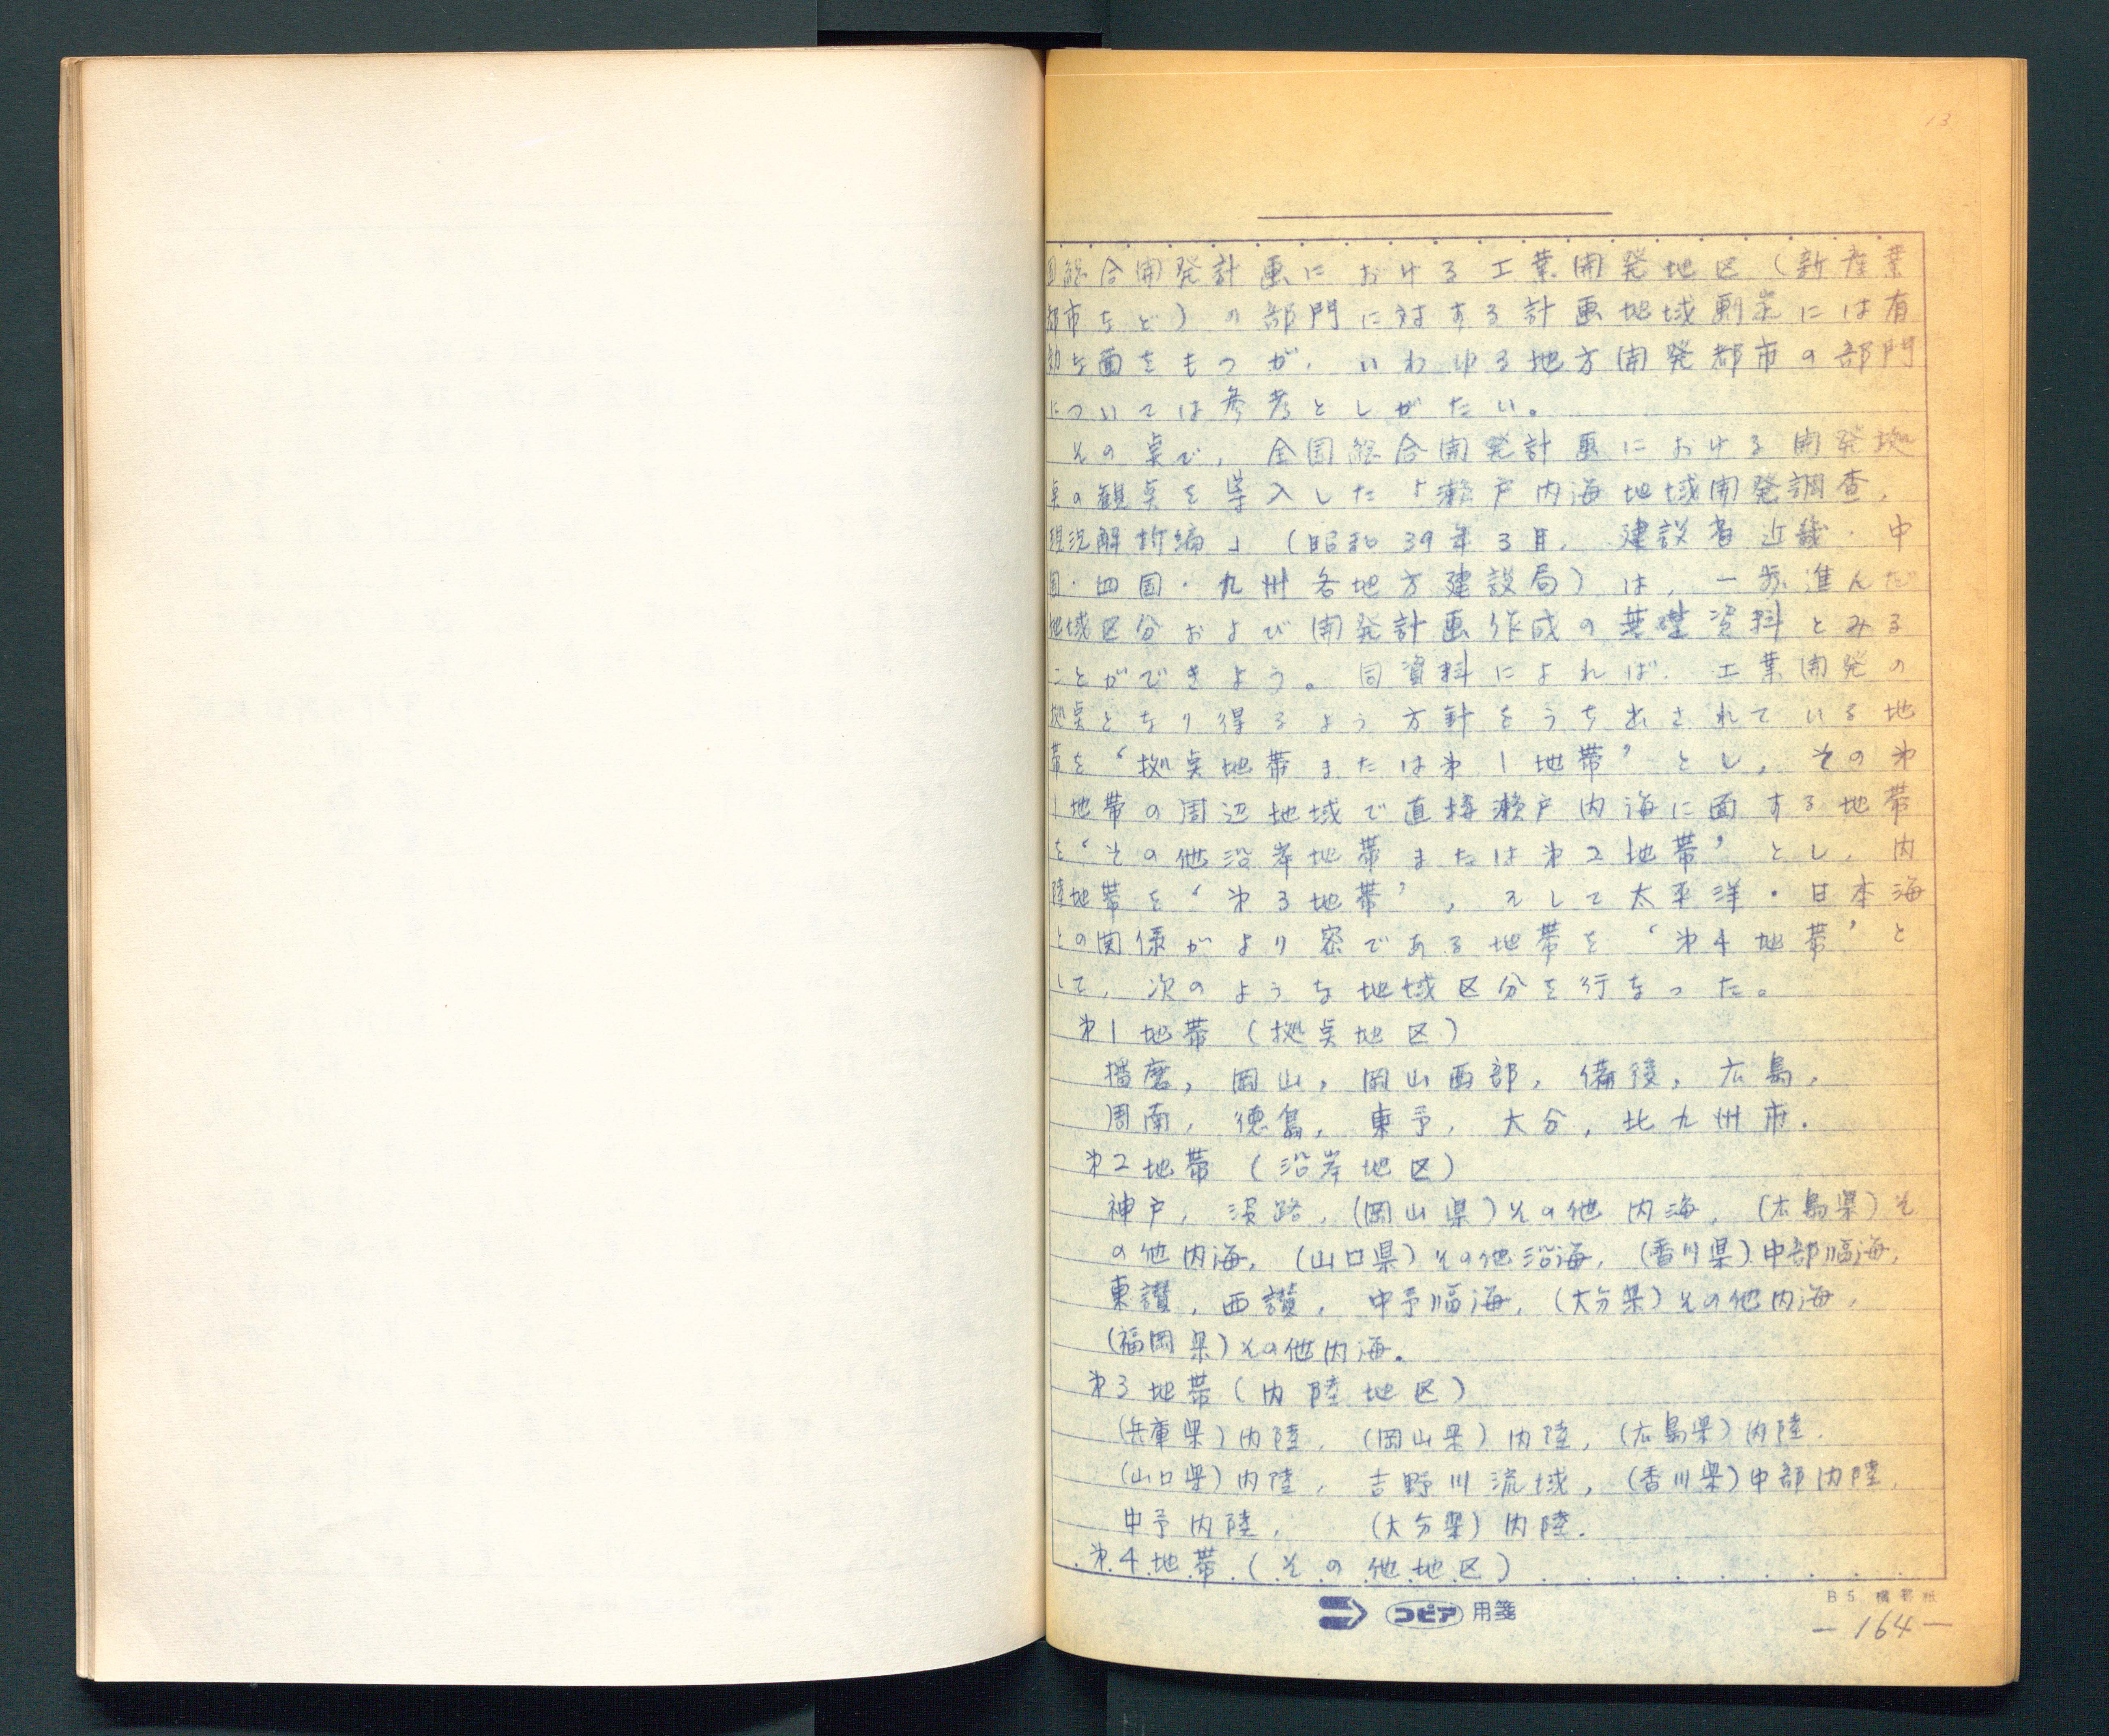 13
国総合開発計画における工業開発地区(新産業
都市など)の部門に対する計画地域劃定には有
効な面をもつが,いわゆる地方開発都市の部門
については参考としがたい。
その点で,全国総合開発計画における開発拠
点の観点を導入した「瀬戸内海地域開発調査,
現況解析編」(昭和39年3月,建設省近畿・中
国・四国・九州各地方建設局)は,一歩進んだ
地域区分および開発計画作成の基礎資料とみる
ことができよう。同資料によれば,工業開発の
拠点となり得るよう方針をうち出されている地
帯を‘拠点地帯または第1地帯’とし,その第
1地帯の周辺地域で直接瀬戸内海に面する地帯
を‘その他沿岸地帯または第2地帯’とし,内
陸地帯を‘第3地帯’,そして太平洋・日本海
との関係がより密である地帯を‘第4地帯’と
して,次のような地域区分を行なった。
第1地帯(拠点地区)
播磨,岡山,岡山西部,備後,広島,
周南,徳島,東予,大分,北九州市.
第2地帯(沿岸地区)
神戸,淡路,(岡山県)その他内海,(広島県)そ
の他内海,(山口県)その他沿海,(香川県)中部臨海,
東讃,西讃,中予臨海,(大分県)その他内海,
(福岡県)その他内海.
第3地帯(内陸地区)
(兵庫県)内陸,(岡山県)内陸,(広島県)内陸,
(山口県)内陸,吉野川流域,(香川県)中部内陸,
中予内陸,(大分県)内陸.
第4地帯(その他地区)
コピア用箋
B5 横罫紙
—164—